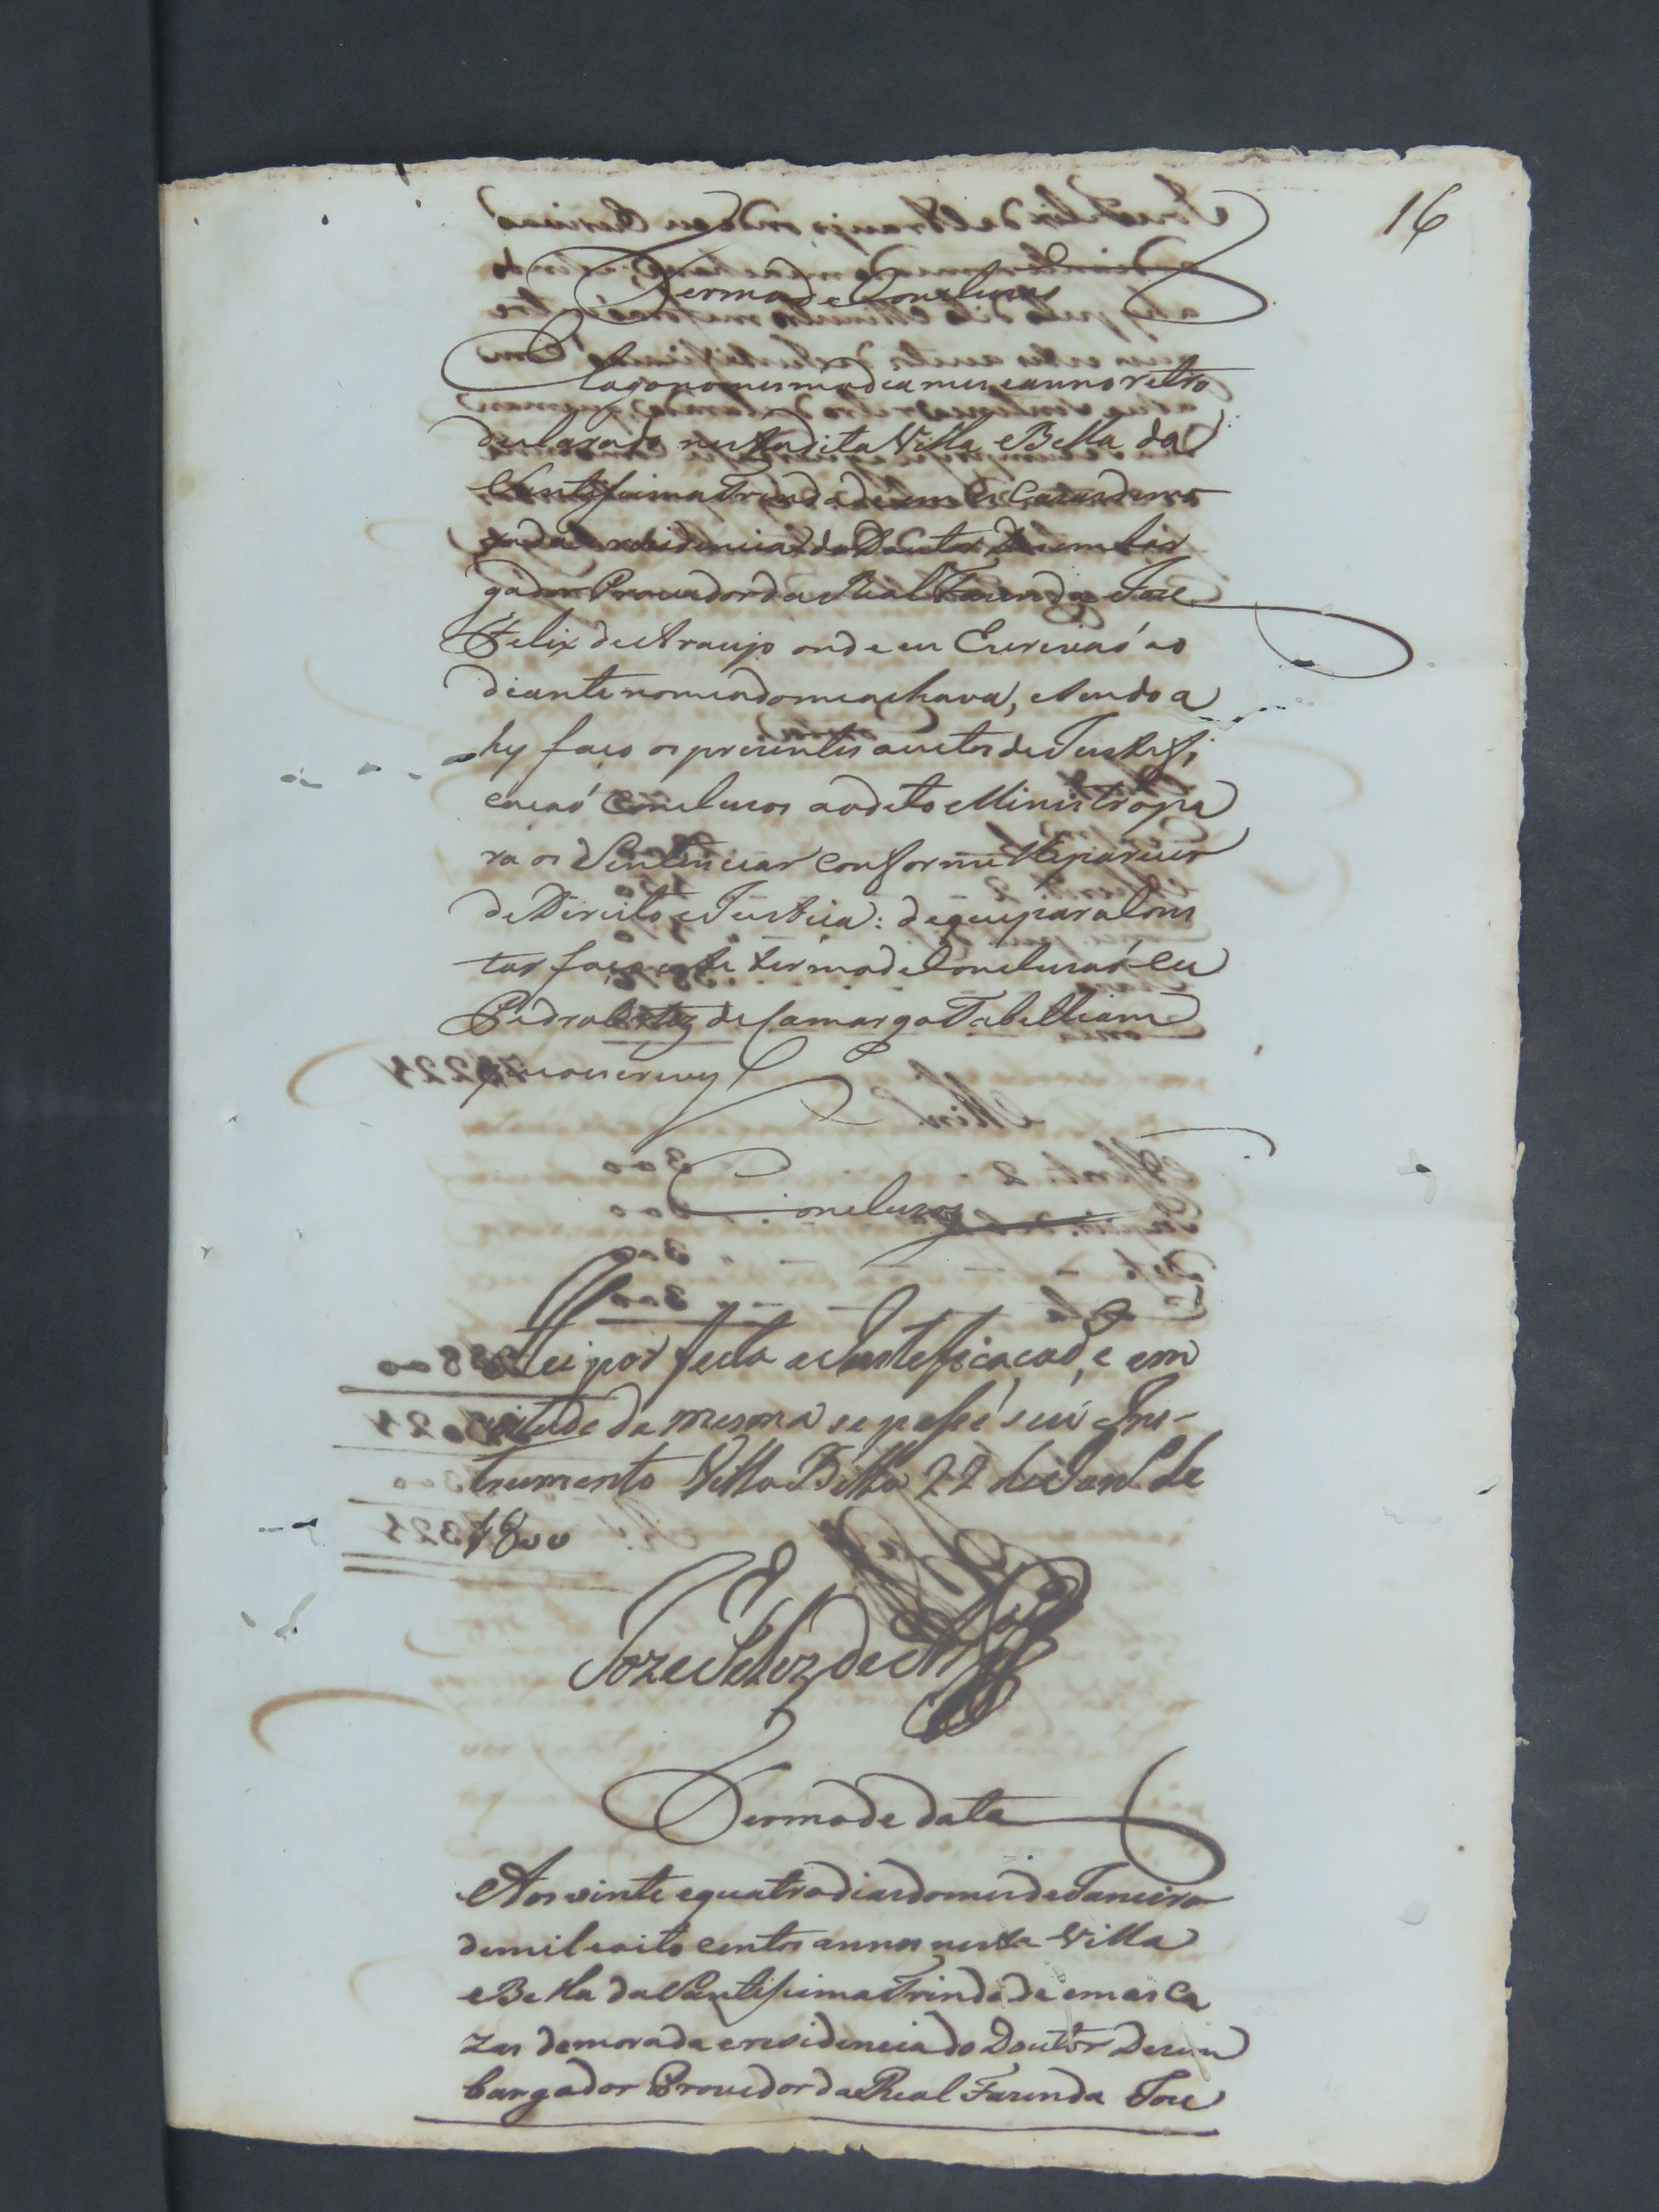 16
Termo de Concluzaõ
E Logo no mesmo dia mes e anno retro
declarado nesta dita Villa Bella da
Santissima Trindade em as Cazas de mo
rada e rezidencia do Doutor Dezembar
gador Provedor da Real Fazenda Joze
Felix de Araujo onde eu Escrivaõ ao
diante nomeado me achava, e sendo a
hy faço os prezentes autos de Justefi
cacaõ Concluzos ao dito Ministro pa
ra os Sentenciar conforme lhe parecer
de Direito e Justiça: de que para Cons
tar faço este termo de Concluzaõ eu
Pedro de Camargo Tabelliam
que o escrevy
Concluzos
Hei por feita a Justeficacaõ, e em
virtude da mesma se passe seu Ins-
trumento Villa Bella 22 de Jan.º de
1800
Joze Felix de
Termo de data
Aos vinte e quatro dias do mes de Janeiro
de mil e oito centos annos nesta Villa
Bella da Santissima Trindade em as Ca
zas de morada e rezidencia do Doutor Dezem
bargador Provedor da Real Fazenda Joze